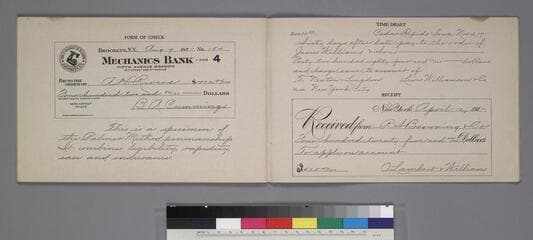 FORM OF CHECK
BROOKLYN, N.Y. Aug 9, 191 No. 124
MECHANICS BANK 4
FIFTH AVENUE BRANCH
PAY TO THE
ORDER OF
Four hundred two and no/100 DOLLARS
B. A. Cummings
This is a specimen of
the Palmer Method penmanship.
It combines legibility, rapidity,
ease and endurance.
TIME DRAFT
Cedar Rapids, Iowa, Nov. 2, 19
Sixty days after date pay to the order of
James Williams
Forty two hundred eighty-four and no/100 dollars
and charge same to account of
To Louis Williamson & Co.
New York City
RECEIPT
New York, April 12, 191
Received from P. H. Browning & Co.
Four hundred twenty five and no/100 Dollars
To apply on account
$425 no/100 C. Lambert Williams